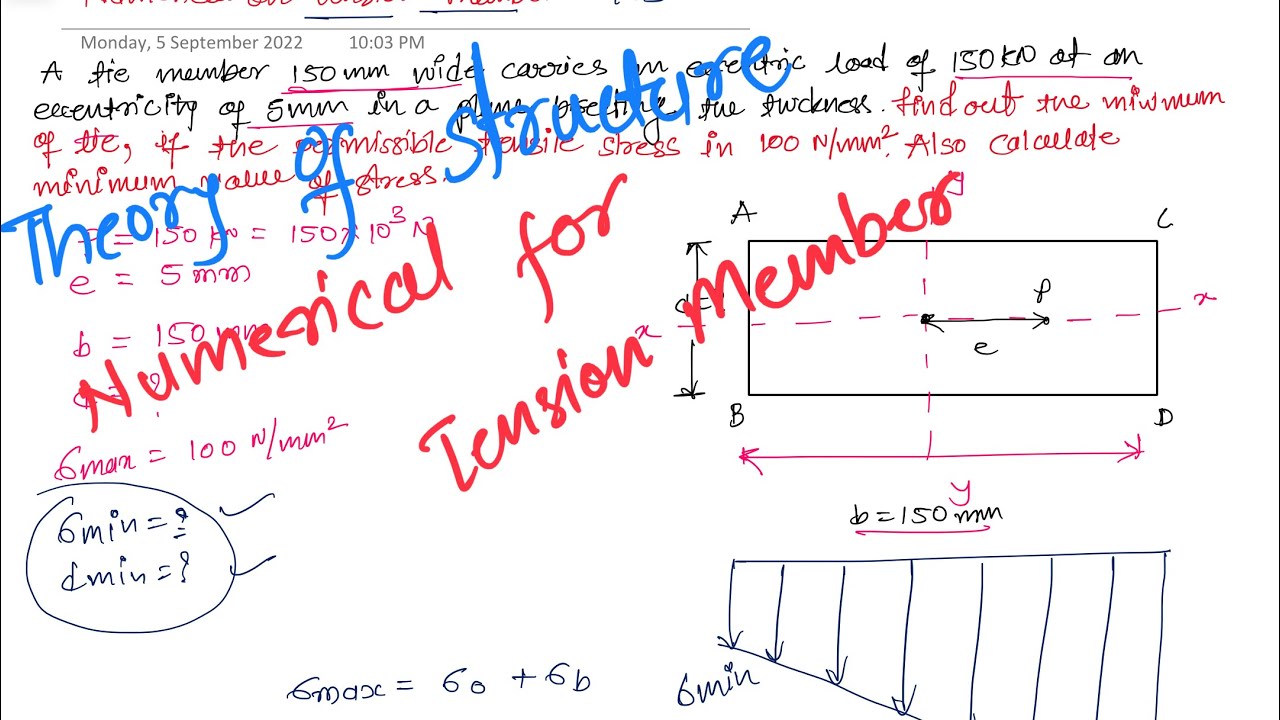 Numerical on Tension Member
Monday, 5 September 2022 10:03 PM
A tie member 150 mm wide carries an eccentric load of 150 KN at an
eccentricity of 5mm in a plane bisecting the thickness. find out the minimum
of tie, if the permissible tensile stress in 100 N/mm². Also calculate
minimum value of stress.
Theory of structure
Numerical for
Tension Member
P = 150 KN = 150 × 10³ N
e = 5 mm
b = 150 mm
d = ?
σmax = 100 N/mm²
σmin = ?
dmin = ?
σmax = σo + σb
y
A
C
d =
x
P
x
e
B
D
y
b = 150 mm
σmin